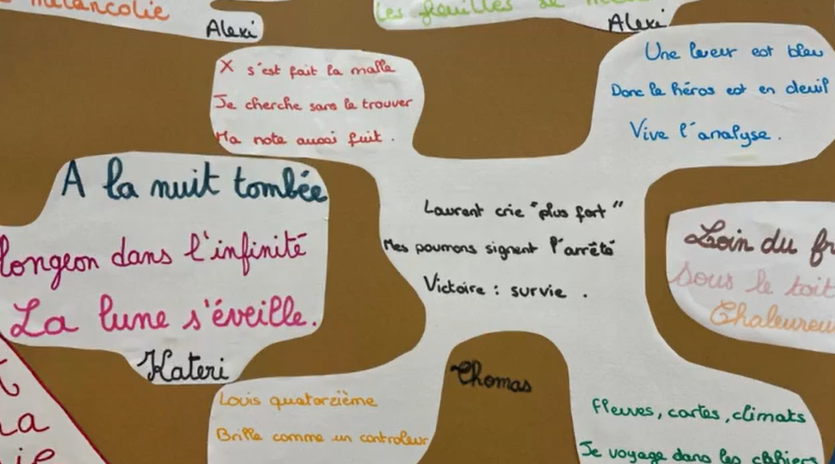 mélancolie
Alexi
Les feuilles de
Alexi
X s'est fait la malle
Je cherche sans le trouver
Ma note aussi fuit.
Une lueur est bleu
Donc le héros est en deuil
Vive l'analyse.
A la nuit tombée
longeon dans l'infinité
La lune s'éveille.
Kateri
Laurent crie "plus fort"
Mes poumons signent l'arrêté
Victoire : survie.
Loin du fr
Sous le toit
Chaleureu
Thomas
Louis quatorzième
Brille comme un controleur
Fleuves, cartes, climats
Je voyage dans les cahiers